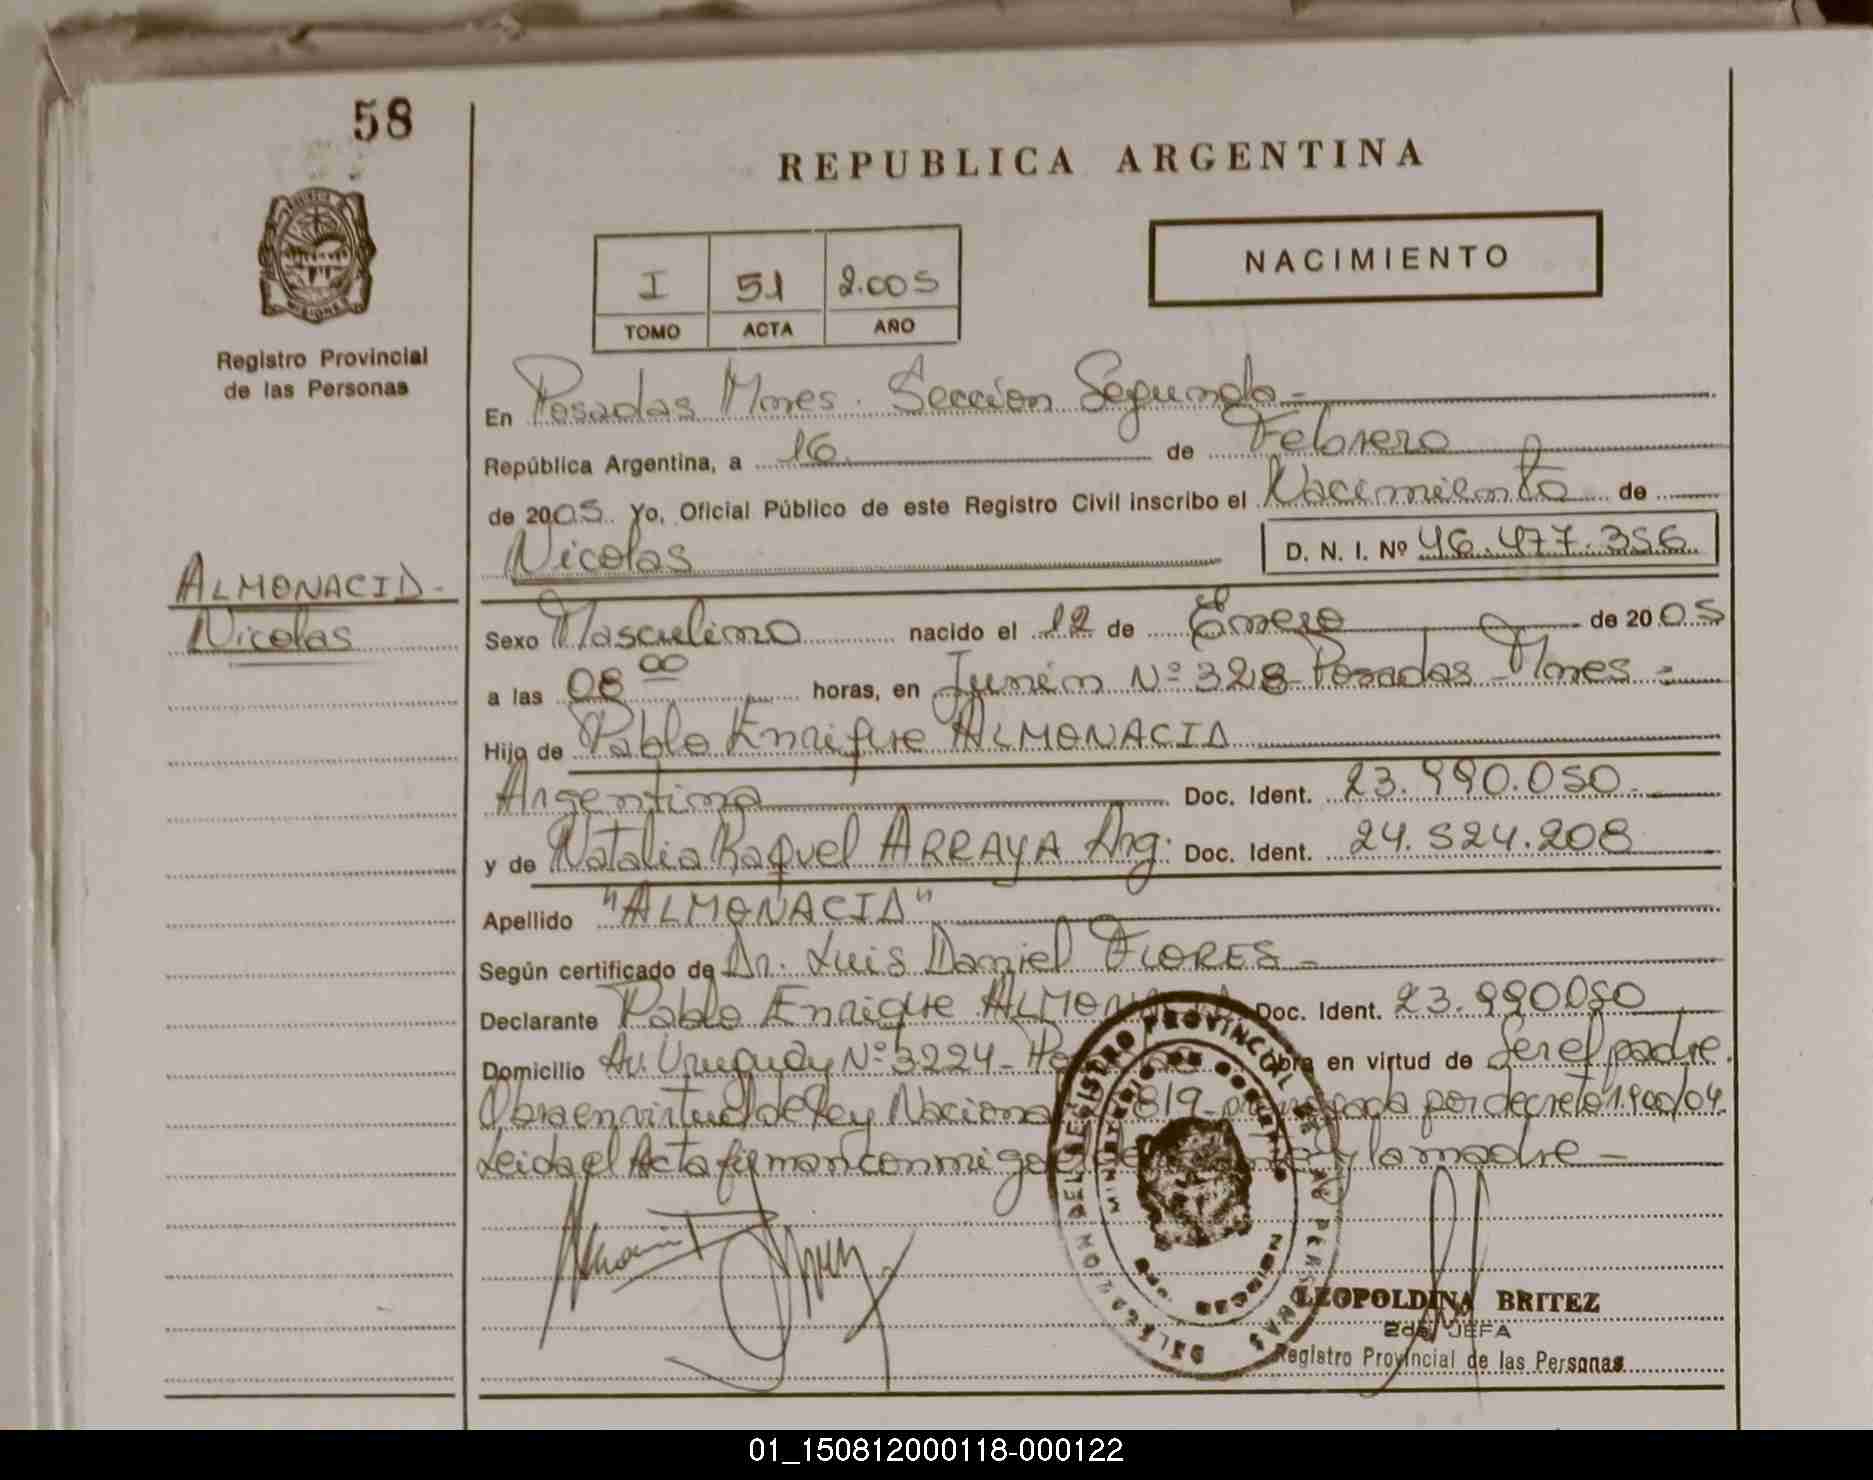 58
REPUBLICA ARGENTINA
NACIMIENTO
I 51 2.005
TOMO ACTA AÑO
Registro Provincial
de las Personas
En Posadas Mnes. Sección Segunda -
República Argentina, a 16 de Febrero
de 2005 Yo, Oficial Público de este Registro Civil inscribo el Nacimiento de
Nicolas D. N. I. Nº 46.477.356
ALMONACID -
Nicolas
Sexo Masculino nacido el 12 de Enero de 2005
a las 08 00 horas, en Junín Nº 328 Posadas - Mnes -
Hijo de Pablo Enrique ALMONACID
Argentina Doc. Ident. 23.990.050
y de Natalia Raquel ARRAYA Arg. Doc. Ident. 24.524.208
Apellido "ALMONACID"
Según certificado de Dr. Luis Daniel FLORES -
Declarante Pablo Enrique Doc. Ident. 23.990.050
Domicilio Av. Uruguay Nº 3224 - Obra en virtud de Ser el padre.
Obra en virtud de ley Nacional 819 - por decreto 1.900/04
Leida el Acta firman conmigo y la madre -
REGISTRO PROVINCIAL DE LAS PERSONAS
MINISTERIO DE GOBIERNO
MISIONES
LEOPOLDINA BRITEZ
2da. JEFA
Registro Provincial de las Personas
01_150812000118-000122